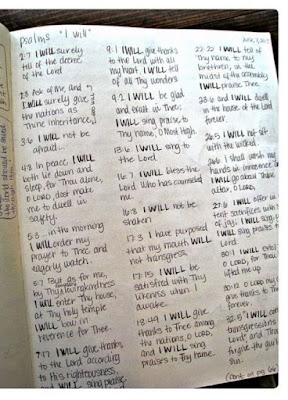 psalms "I will"
2:7 I WILL surely
tell of the decree
of the Lord
2:8 Ask of Me, and
I WILL surely give
the nations as
Thine inheritance,
3:6 I WILL not be
afraid...
4:8 In peace I WILL
both lie down and
sleep, for Thou alone,
O LORD, dost make
me to dwell in
safety.
5:3 ... in the morning
I WILL order my
prayer to Thee and
eagerly watch.
5:7 But as for me,
by Thy lovingkindness
I WILL enter Thy house,
at Thy holy temple
I WILL bow in
reverence for Thee.
7:17 I WILL give thanks
to the Lord according
to His righteousness,
and WILL sing praise
9:1 I WILL give thanks
to the Lord with all
my heart, I WILL tell
of all Thy wonders
9:2 I WILL be glad
and exult in Thee;
I WILL sing praise to
Thy name, O Most High.
13:6 I WILL sing to
the Lord.
16:7 I WILL bless the
Lord who has counseled
me.
16:8 I WILL not be
shaken
17:3 I have purposed
that my mouth WILL
not transgress.
17:15 I WILL be
satisfied with Thy
likeness when I
awake.
18:49 I WILL give
thanks to Thee among
the nations, O LORD,
and I WILL sing
praises to Thy name.
22:22 I WILL tell of
Thy name to my
brethren; in the
midst of the assembly
I WILL praise Thee.
23:6 and I WILL dwell
in the house of the
LORD forever
26:5 I WILL not sit
with the wicked.
26:6 I shall wash my
hands in innocence, &
I WILL go about Thine
altar, O LORD.
27:6 I WILL offer in
tent sacrifices with
of joy; I WILL sing
WILL sing praises to
Lord
30:1 I WILL extol
O LORD, for Thou
lifted me up
30:12 O LORD my
give thanks to Thee
forever.
32:5 "I WILL con
transgressions
Lord"; and Thou
forgive the guilt
sin.
(cont. on pg 66